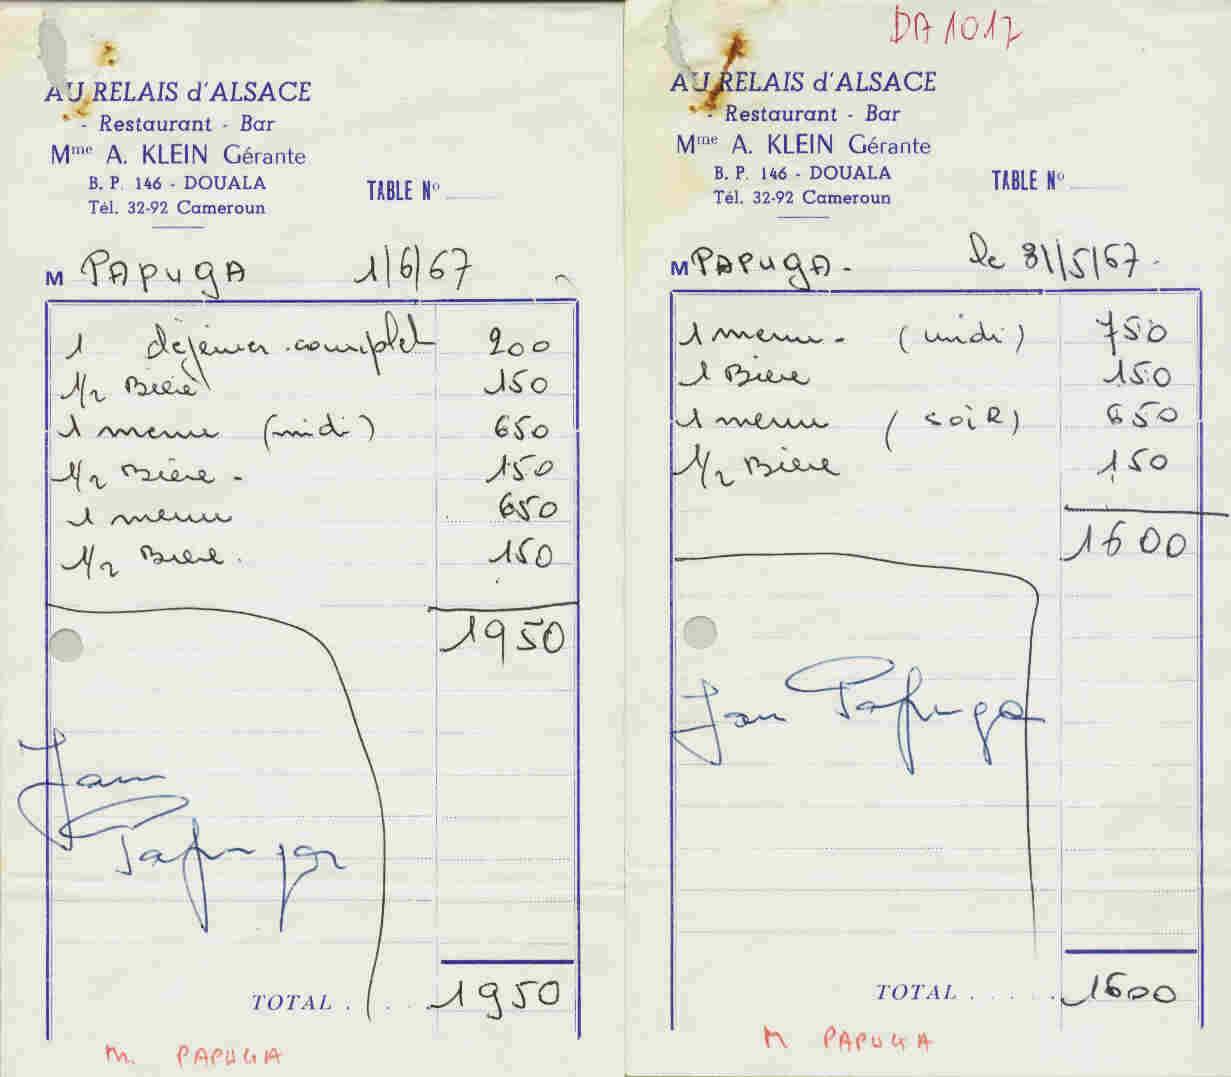 AU RELAIS d'ALSACE
- Restaurant - Bar
Mme A. KLEIN Gérante
B. P. 146 - DOUALA
Tél. 32-92 Cameroun
TABLE No
M PAPUGA 1/6/67
1 déjeuner complet 200
1/2 Bière 150
1 menu (midi) 650
1/2 Bière - 150
1 menu 650
1/2 Bière. 150
1950
Jan
Papuga
TOTAL . . . . 1950
M. PAPUGA
DA 1017
AU RELAIS d'ALSACE
- Restaurant - Bar
Mme A. KLEIN Gérante
B. P. 146 - DOUALA
Tél. 32-92 Cameroun
TABLE No
M PAPUGA. le 31/5/67.
1 menu. (midi) 750
1 Bière 150
1 menu (SOIR) 650
1/2 Bière 150
1600
Jan Papuga
TOTAL . . . . . 1600
M PAPUGA